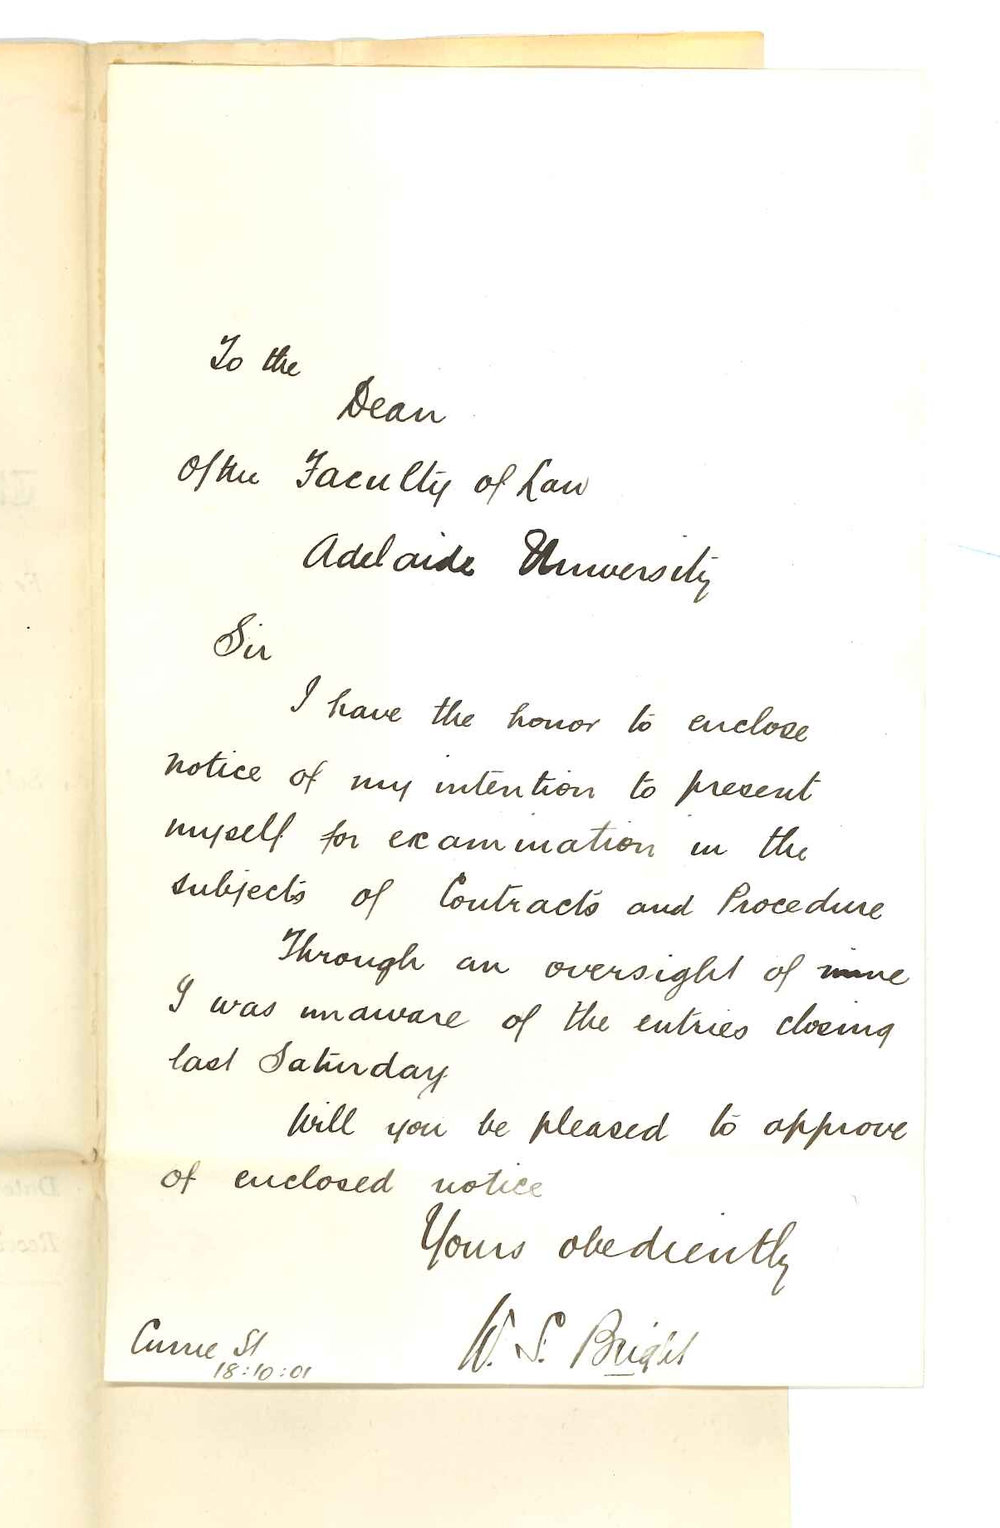 To the
Dean
Of the Faculty of Law
Adelaide University
Sir
I have the honor to enclose
notice of my intention to present
myself for examination in the
subjects of Contracts and Procedure
Through an oversight of mine
I was unaware of the entries closing
last Saturday
Will you be pleased to approve
of enclosed notice
Yours obediently
W. S. Bright
Currie St
18:10:01